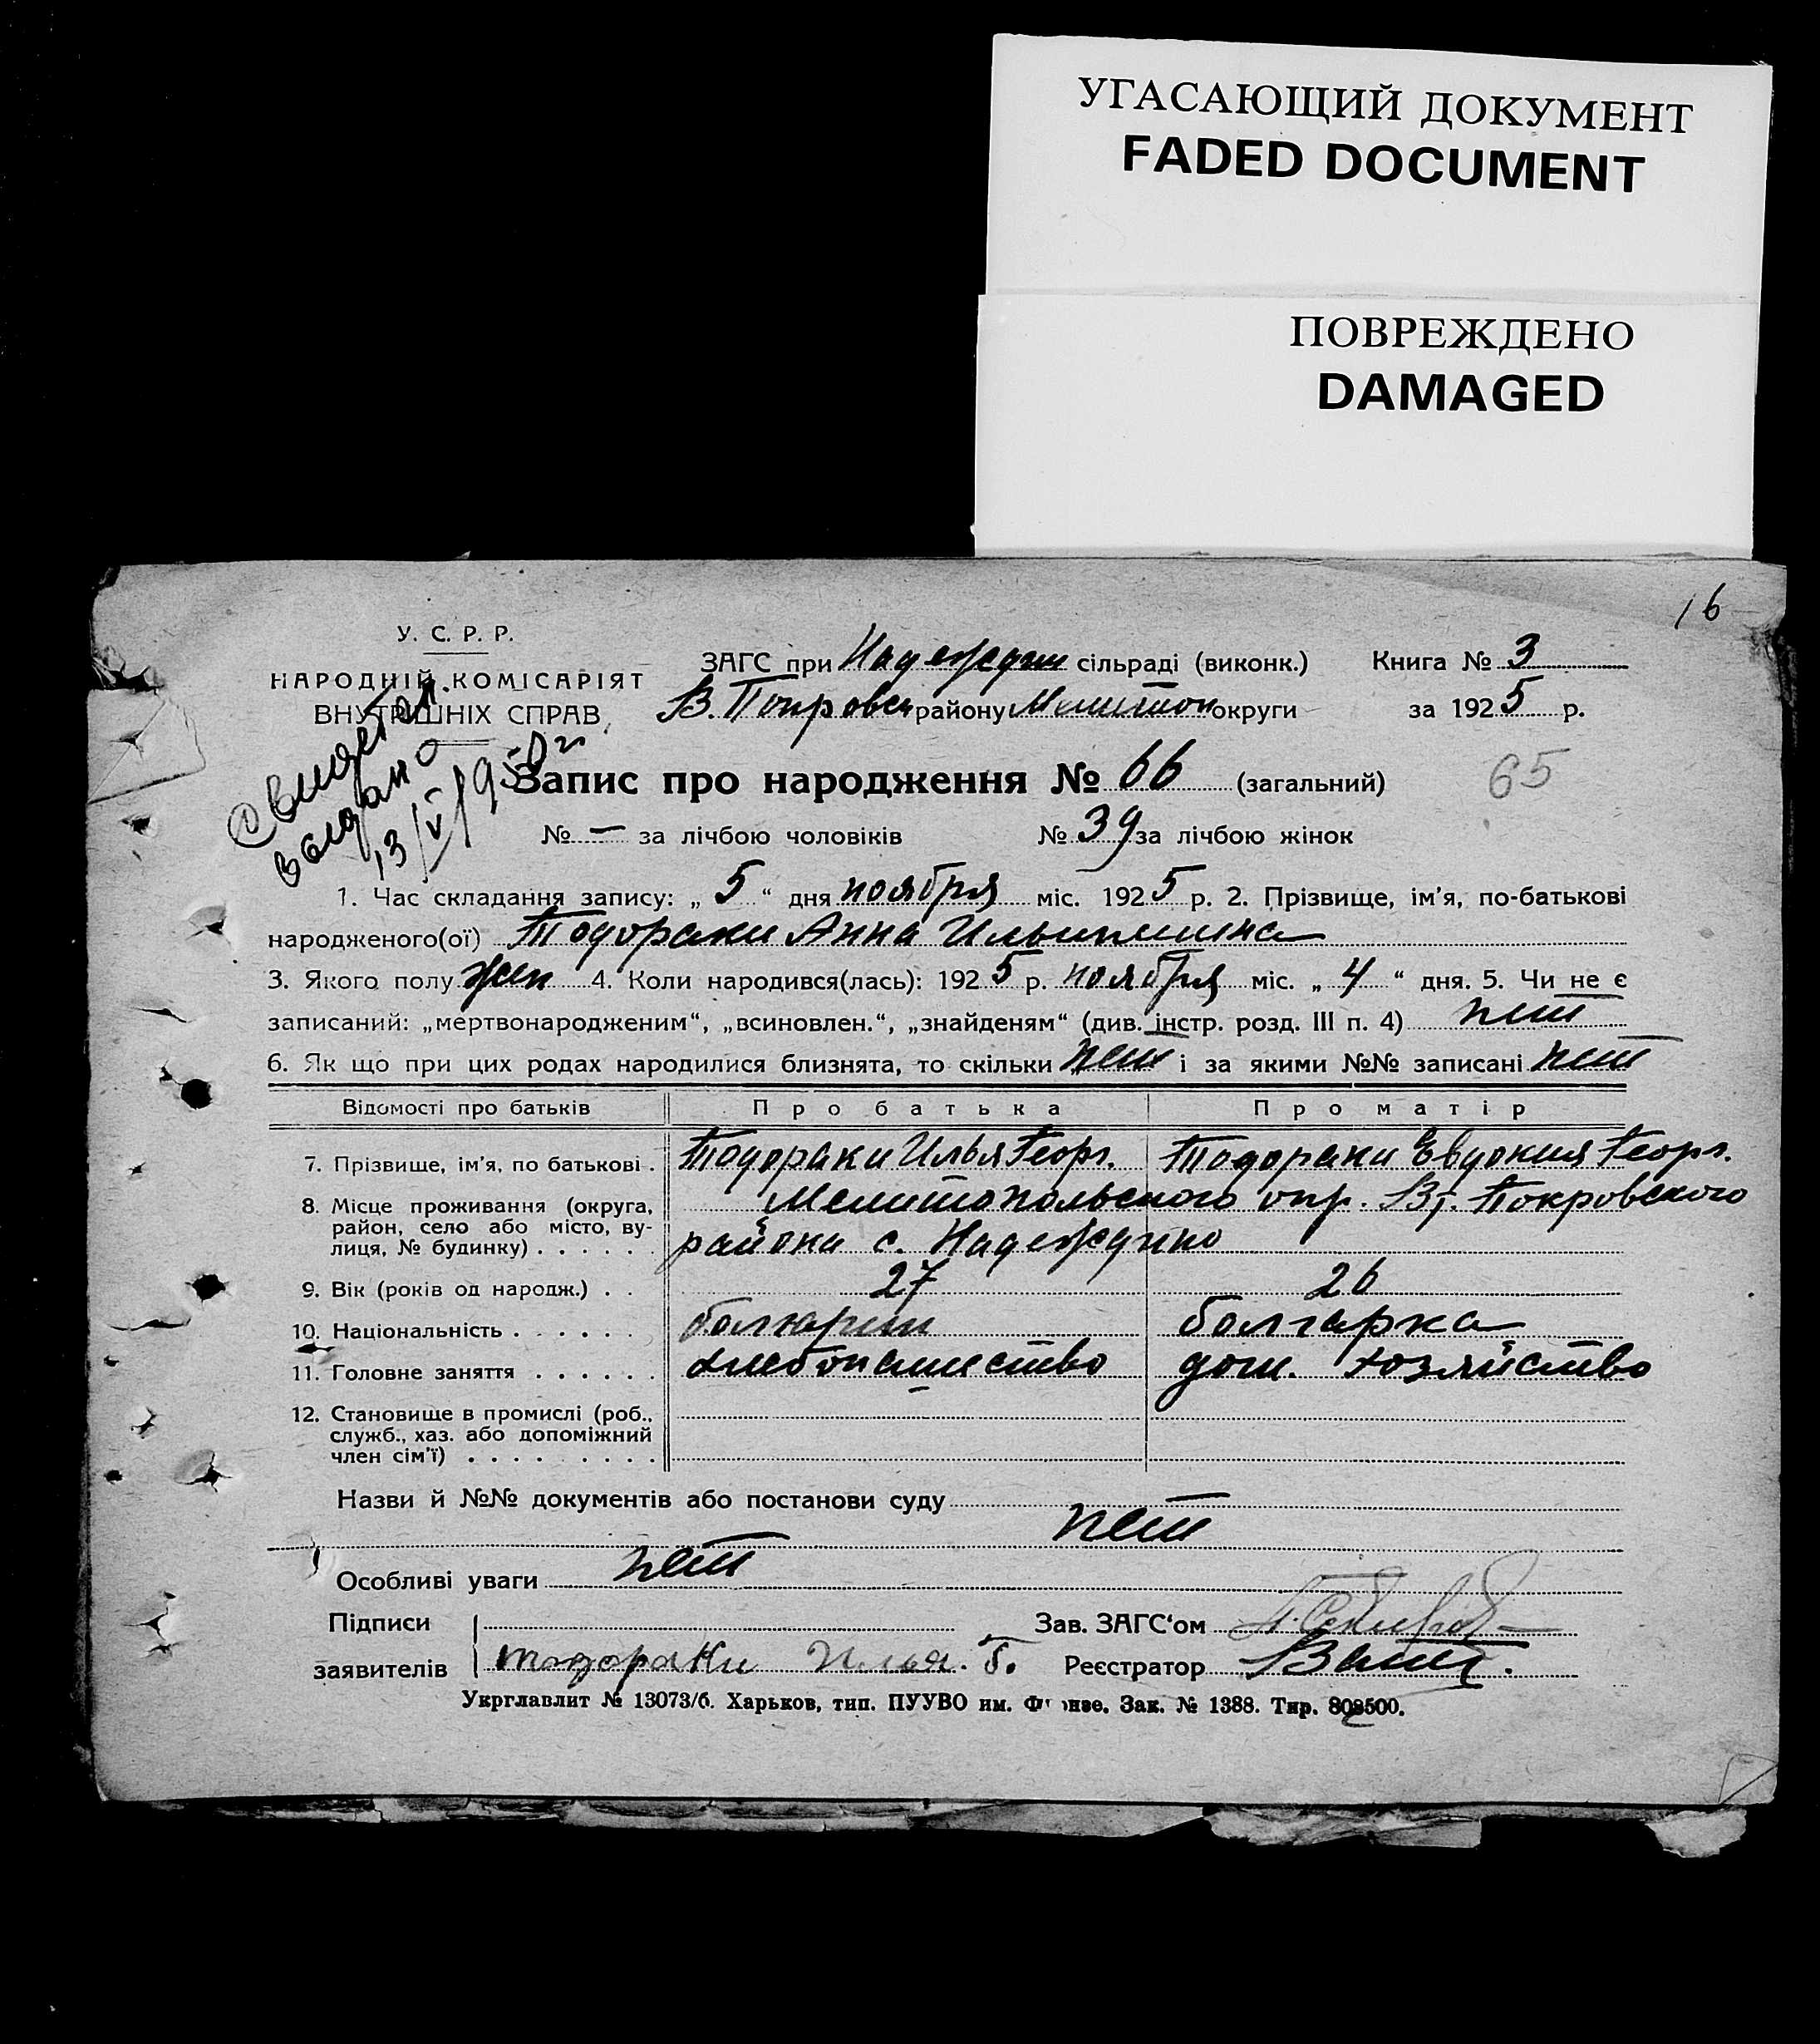 УГАСАЮЩИЙ ДОКУМЕНТ
FADED DOCUMENT
ПОВРЕЖДЕНО
DAMAGED
16
У. С. Р. Р.
НАРОДНІЙ КОМІСАРІЯТ
ВНУТРІШНІХ СПРАВ
Свидетел.
выдано
13/V 1950 г
ЗАГС при Надеждин сільраді (виконк.) Книга № 3
В. Покровск району Мелитоп округи за 1925 р.
Запис про народження № 66 (загальний) 65
№ — за лічбою чоловіків № 39 за лічбою жінок
1. Час складання запису: „ 5 “ дня ноября міс. 1925 р. 2. Прізвище, ім'я, по-батькові
народженого(ої) Тодораки Анна Ильинишна
3. Якого полу жен 4. Коли народився(лась): 1925 р. ноября міс. „ 4 “ дня. 5. Чи не є
записаний: „мертвонародженим“, „всиновлен.“, „знайденям“ (див. інстр. розд. III п. 4) нет
6. Як що при цих родах народилися близнята, то скільки нет і за якими №№ записані нет
Відомості про батьків Про батька Про матір
7. Прізвище, ім'я, по батькові . Тодораки Илья Георг. Тодораки Евдокия Георг.
8. Місце проживання (округа, Мелитопольского окр. Вт. Покровского
район, село або місто, ву-
лиця, № будинку) . . . . . . района с. Надеждино
9. Вік (років од народж.) . . 27 26
10. Національність . . . . . . болгарин болгарка
11. Головне заняття . . . . . . хлебопашество дом. хозяйство
12. Становище в промислі (роб.,
служб., хаз. або допоміжний
член сім'ї) . . . . . . . . .
Назви й №№ документів або постанови суду нет
Особливі уваги нет
Підписи Зав. ЗАГС‘ом
заявителів тодораки Илья. Г. Реєстратор
Укрглавлит № 13073/б. Харьков, тип. ПУУВО им. Фрунзе. Зак. № 1388. Тир. 802500.